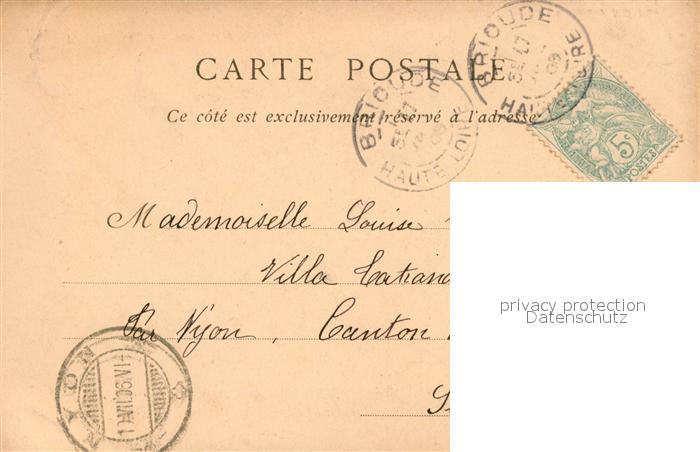 CARTE POSTALE
Ce côté est exclusivement réservé à l'adresse
BRIOUDE
HAUTE LOIRE
BRIOUDE
HAUTE LOIRE
5c
POSTES
Mademoiselle Louise
Villa
Par Nyon, Canton
NYON
privacy protection
Datenschutz